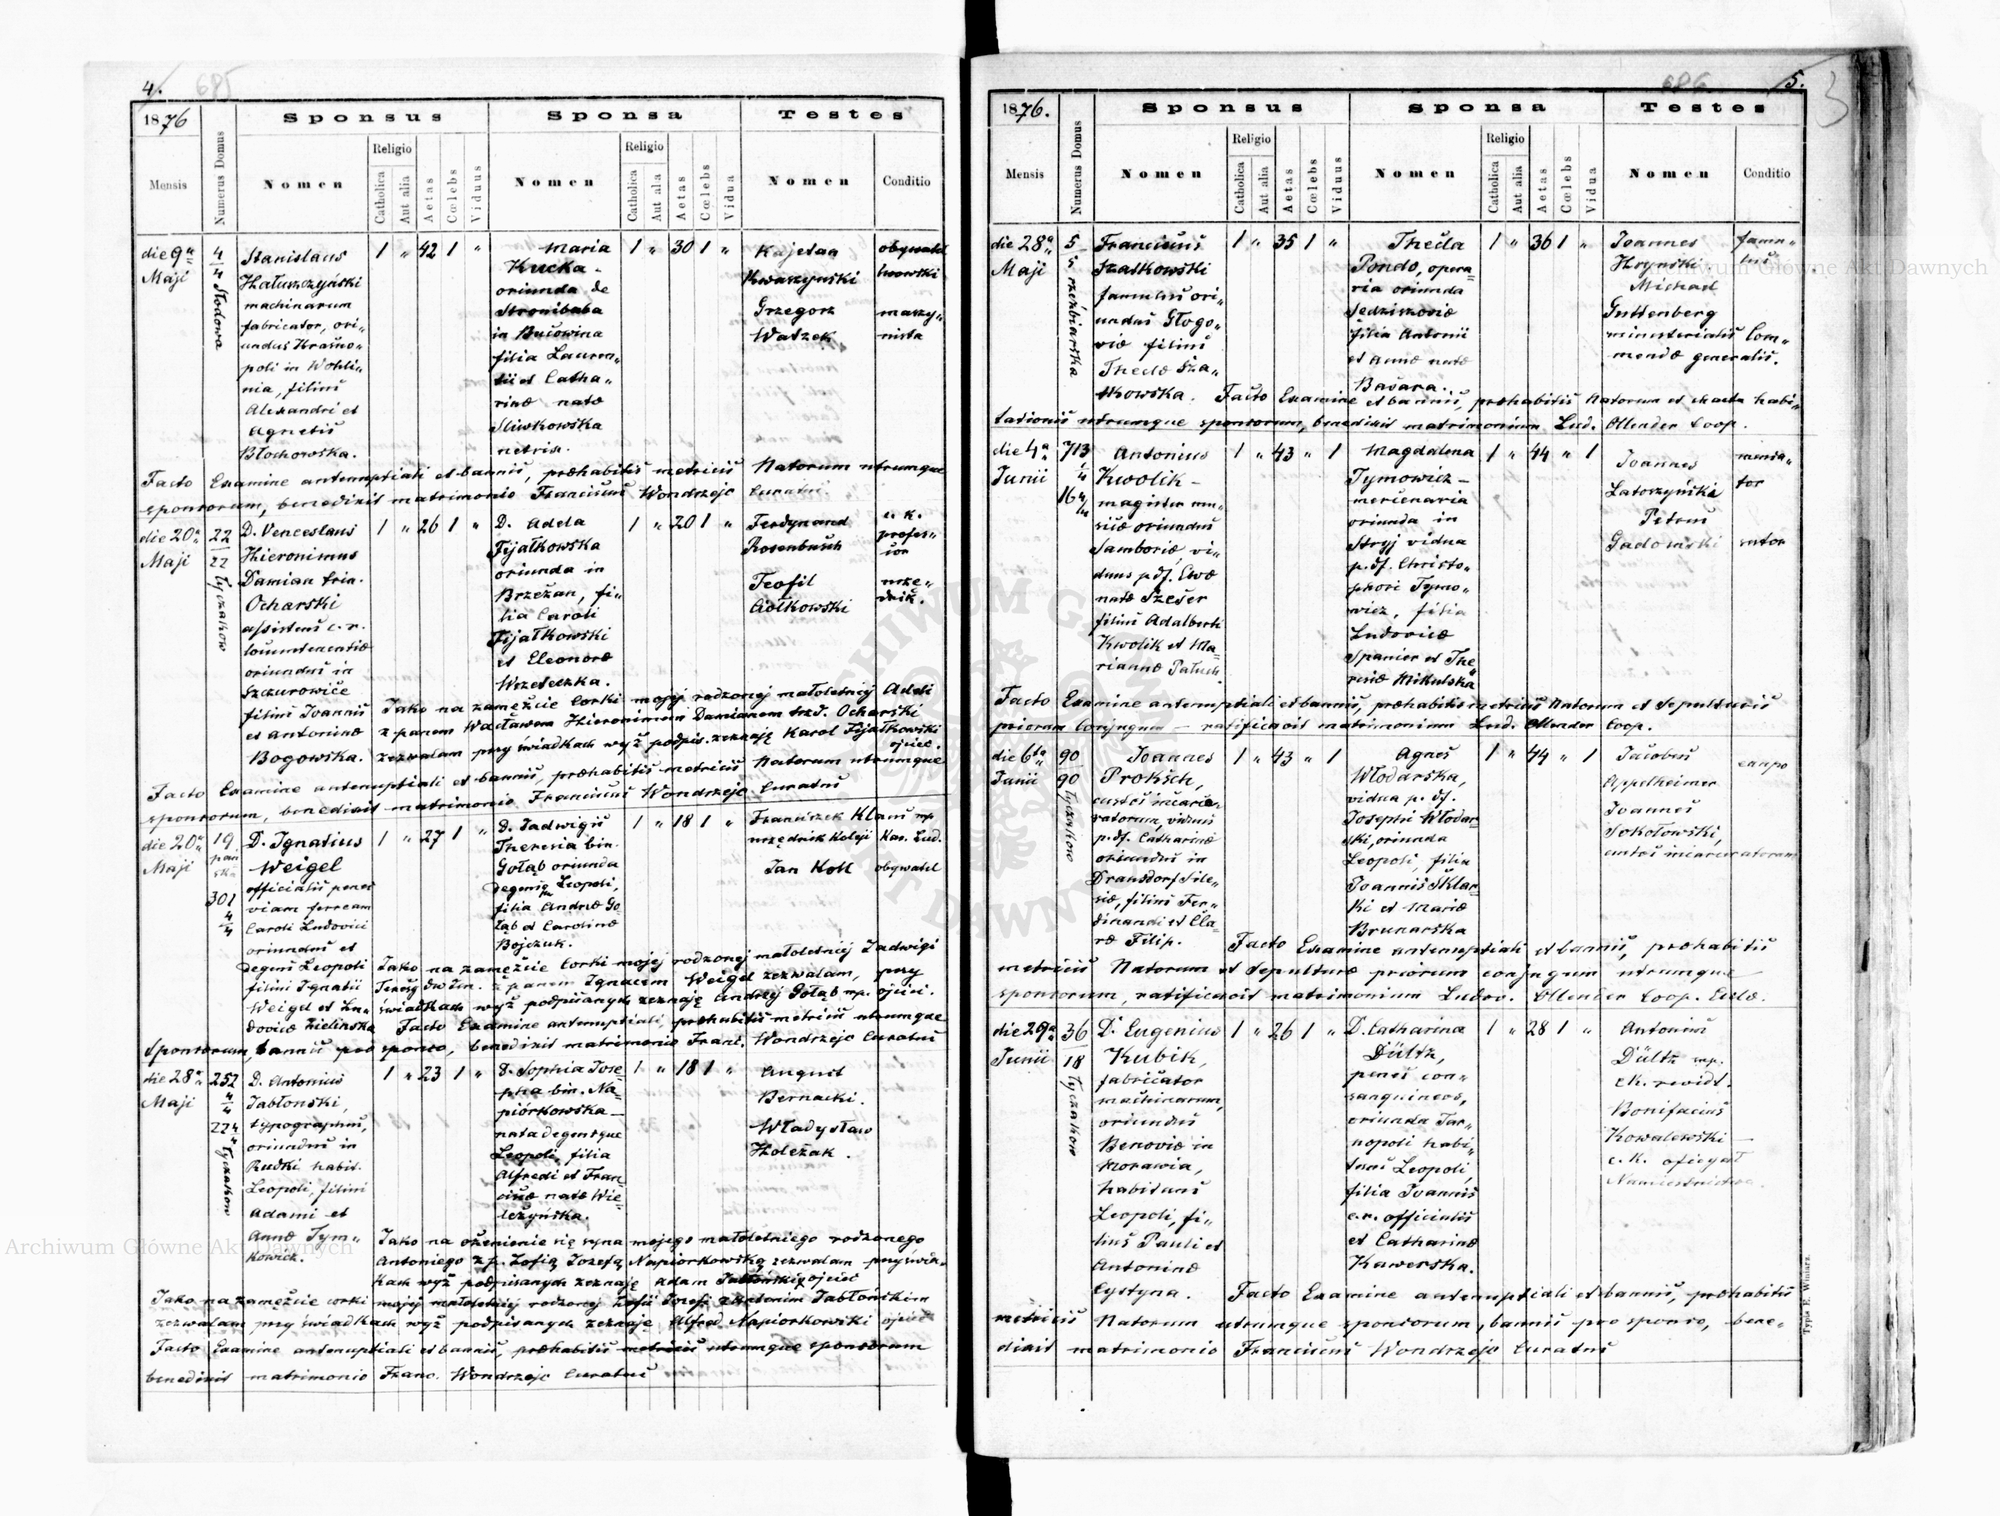 4.
685
1876
Numerus Domus
Sponsus
Sponsa
Testes
Religio
Religio
Mensis
Nomen
Catholica
Aut alia
Aetas
Cœlebs
Viduus
Nomen
Catholica
Aut ala
Aetas
Cœlebs
Vidua
Nomen
Conditio
die 9a
Maji
4
4
Słodowa
Stanislaus
machinarum
fabricator, ori„
undus Krasno„
poli in Wohli„
nia, filius
Alexandri et
Agnetis
Błochowska.
1 „ 42 1 „
Maria
Kucka.
oriunda de
in Bucowina
filia Lauren„
tii et Catha„
rinæ natæ
Sliwkowska
1 „ 30 1 „
Kajetan
Kwaszynski
Grzegorz
Watzek
obywatel
lwowski
maszy„
nista
Facto Examine antenuptiali et bannis, præhabitis metricis Natorum utrumque
sponsorum, benedixit matrimonio Franciscus Wondrzejc Curatus
die 20a
Maji
22
22
Łyczakow
D. Venceslaus
Hieronimus
Damian trin.
Ocharski
assistens c. r.
locumtenentiæ
oriundus in
Szczurowice
filius Joannis
et Antoninæ
Bogowska.
1 „ 26 1 „
D. Adela
Fijałkowska
oriunda in
Brzeżan, fi„
lia Caroli
Fijałkowski
et Eleonoræ
Wszeteczka.
1 „ 20 1 „
Ferdynand
Rosenbusch
Teofil
Ciołkowski
c. k.
profes„
sor
urzę„
dnik.
Jako na zamęźcie Corki mojej rodzonej małoletniej Adeli
z panem Wacławem Hieronimem Damianem trzI. Ocharski
zezwalam przy świadkach wyż podpis. zeznaję Karol Fijałkowski
ojciec.
Facto Examine antenuptiali et bannis, præhabitis metricis Natorum utrumque
sponsorum, benedixit matrimonio Franciscus Wondrzejc Curatus
die 20a
Maji
19
pan
ska
301
4
4
D. Ignatius
Weigel
officialis penes
viam ferream
Caroli Ludovici
oriundus et
degens Leopoli
filius Ignatii
Weigel et Lu„
dovicæ Zielinska
1 „ 27 1 „
D. Jadwigis
Theresia bin.
Gołąb oriunda
Leopoli,
filia Andreæ Go„
łąb et Carolinæ
Bojczuk.
1 „ 18 1 „
Franciszek Klaus mp.
urzędnik Koleji Kar. Lud.
Jan Koll obywatel
Jako na zamęźcie Corki mojej rodzonej małoletniej Jadwigi
Teresy dw Im. z panem Ignacem Weigel zezwalam, przy
świadkach wyż podpisanych zeznaję Andrzej Gołąb mp. ojciec.
Facto Examine antenuptiali, præhabitis metricis utrumque
Sponsorum, bannis pro sponso, benedixit matrimonio Franc. Wondrzejc Curatus
die 28a
Maji
252
4
4
224
Łyczakow
D. Antonius
Jabłonski,
typographus,
oriundus in
Rudki habit.
Leopoli, filius
Adami et
Annæ Tym„
kowicz.
1 „ 23 1 „
D. Sophia Jose„
pha bin. Na„
piórkowska
nata degensque
Leopoli, filia
Alfredi et Fran„
ciscæ natæ Wie„
leżyńska.
1 „ 18 1 „
August
Bernacki.
Władysław
Hołeżak.
Jako na ożenienie się syna mojego małoletniego rodzonego
Antoniego z p. Zofią Jozefą Napiorkowską zezwalam przy świad„
kach wyż podpisanych zeznaję Adam Jabłoński ojciec
Jako na zamęźcie corki mojej małoletniej rodzonej Zofii Jozefy z Antonim Jabłonskim
zezwalam, przy świadkach wyż podpisanych zeznaję Alfred Napiorkowski ojciec
Facto Examine antenuptiali et bannis, præhabitis metricis utrumque sponsorum
benedixit matrimonio Franc. Wondrzejc Curatus
686
5.
3
1876.
Numerus Domus
Sponsus
Sponsa
Testes
Religio
Religio
Mensis
Nomen
Catholica
Aut alia
Aetas
Cœlebs
Viduus
Nomen
Catholica
Aut alia
Aetas
Cœlebs
Vidua
Nomen
Conditio
die 28a
Maji
5
5
rzeźbiarska
Franciscus
Szatkowski
famulus ori„
undus Głogo„
viæ filius
Theclæ Sza„
tkowska.
1 „ 35 1 „
Thecla
Pondo, opera„
ria oriunda
Sedziszoviæ
filia Antonii
et Annæ natæ
Basara.
1 „ 36 1 „
Joannes
Hryński
Michael
Guttenberg
ministerialis Com„
mendæ generalis.
famu„
lus
Facto Examine et bannis, præhabitis Natorum et charta habi„
tationis utrumque sponsorum, benedixit matrimonium Lud. Ollender Coop.
die 4a
Junii
713
4
16 4/4
Antonius
Kwolik
magister mu„
sicæ oriundus
Samboriæ, vi„
duus p. df. Evæ
natæ Szeser
filius Adalberti
Kwolik et Ma„
riannæ Paluch.
1 „ 43 „ 1
Magdalena
Tymowicz
mercenaria
oriunda in
Stryj vidua
p. df. Christo„
phori Tymo„
wicz, filia
Ludovicæ
Spanier et The„
resiæ Mikulska
1 „ 44 „ 1
Joannes
Latoszyński
Petrus
Gadomski
mensa„
tor
sutor
Facto Examine antenuptiali et bannis, præhabitis metricis Natorum et Sepulturis
priorum Conjugum ratificavit matrimonium Lud. Ollender Coop.
die 6ta
Junii
90
90
Łyczakow
Joannes
Proksch,
custos incarce„
ratorum, viduus
p. df. Catharinæ
oriundus in
Dransdorf Sile„
siæ, filius Fer„
dinandi et Cla„
ræ Filip.
1 „ 43 „ 1
Agnes
Włodarska,
vidua p. df.
Josephi Włodar„
ski, oriunda
Leopoli, filia
Joannis Sklar„
ki et Mariæ
Brunarska
1 „ 44 „ 1
Jacobus
Appelheimer
Joannes
Sokołowski,
custos incarceratorum
caupo
Facto Examine antenuptiali et bannis, præhabitis
metricis Natorum et Sepulturæ priorum conjugum utrumque
sponsorum, ratificavit matrimonium Ludov. Ollender Coop. Eccle.
die 29a
Junii
36
18
Łyczakow
D. Eugenius
Kubik,
fabricator
machinarum,
oriundus
Benoviæ in
Morawia,
habitans
Leopoli, fi„
lius Pauli et
Antoninæ
Cystyna.
1 „ 26 1 „
D. Catharina
Dültz,
penes con„
sanguineos,
oriunda Tar„
nopoli habi„
tans Leopoli,
filia Joannis
c. r. officialis
et Catharinæ
Kawerska.
1 „ 28 1 „
Antonius
Dültz mp.
c. k. rewidt.
Bonifacius
Kowalewski
c. k. oficyał
Namiestnictwa.
Facto Examine antenuptiali et bannis, præhabitis
metricis Natorum utrumque sponsorum, bannis pro sponso, bene„
dixit matrimonio Franciscus Wondrzejc Curatus
Typis E. Winiarz.
Archiwum Główne Akt Dawnych
Archiwum Główne Akt Dawnych
ARCHIWUM GŁÓWNE AKT DAWNYCH